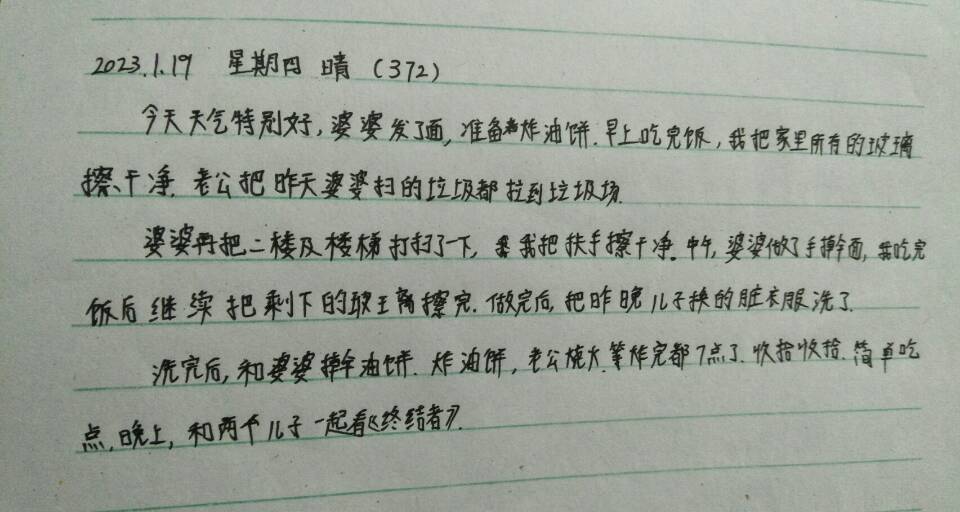 2023.1.19 星期四 晴 (372)
今天天气特别好,婆婆发了面,准备炸油饼.早上吃完饭,我把家里所有的玻璃
擦干净.老公把昨天婆婆扫的垃圾都拉到垃圾场.
婆婆再把二楼及楼梯打扫了一下,我把扶手擦干净.中午,婆婆做了手擀面,我吃完
饭后继续把剩下的玻璃擦完.做完后,把昨晚儿子换的脏衣服洗了.
洗完后,和婆婆擀油饼.炸油饼,老公烧火.等炸完都7点了.收拾收拾.简单吃
点.晚上,和两个儿子一起看《终结者》.